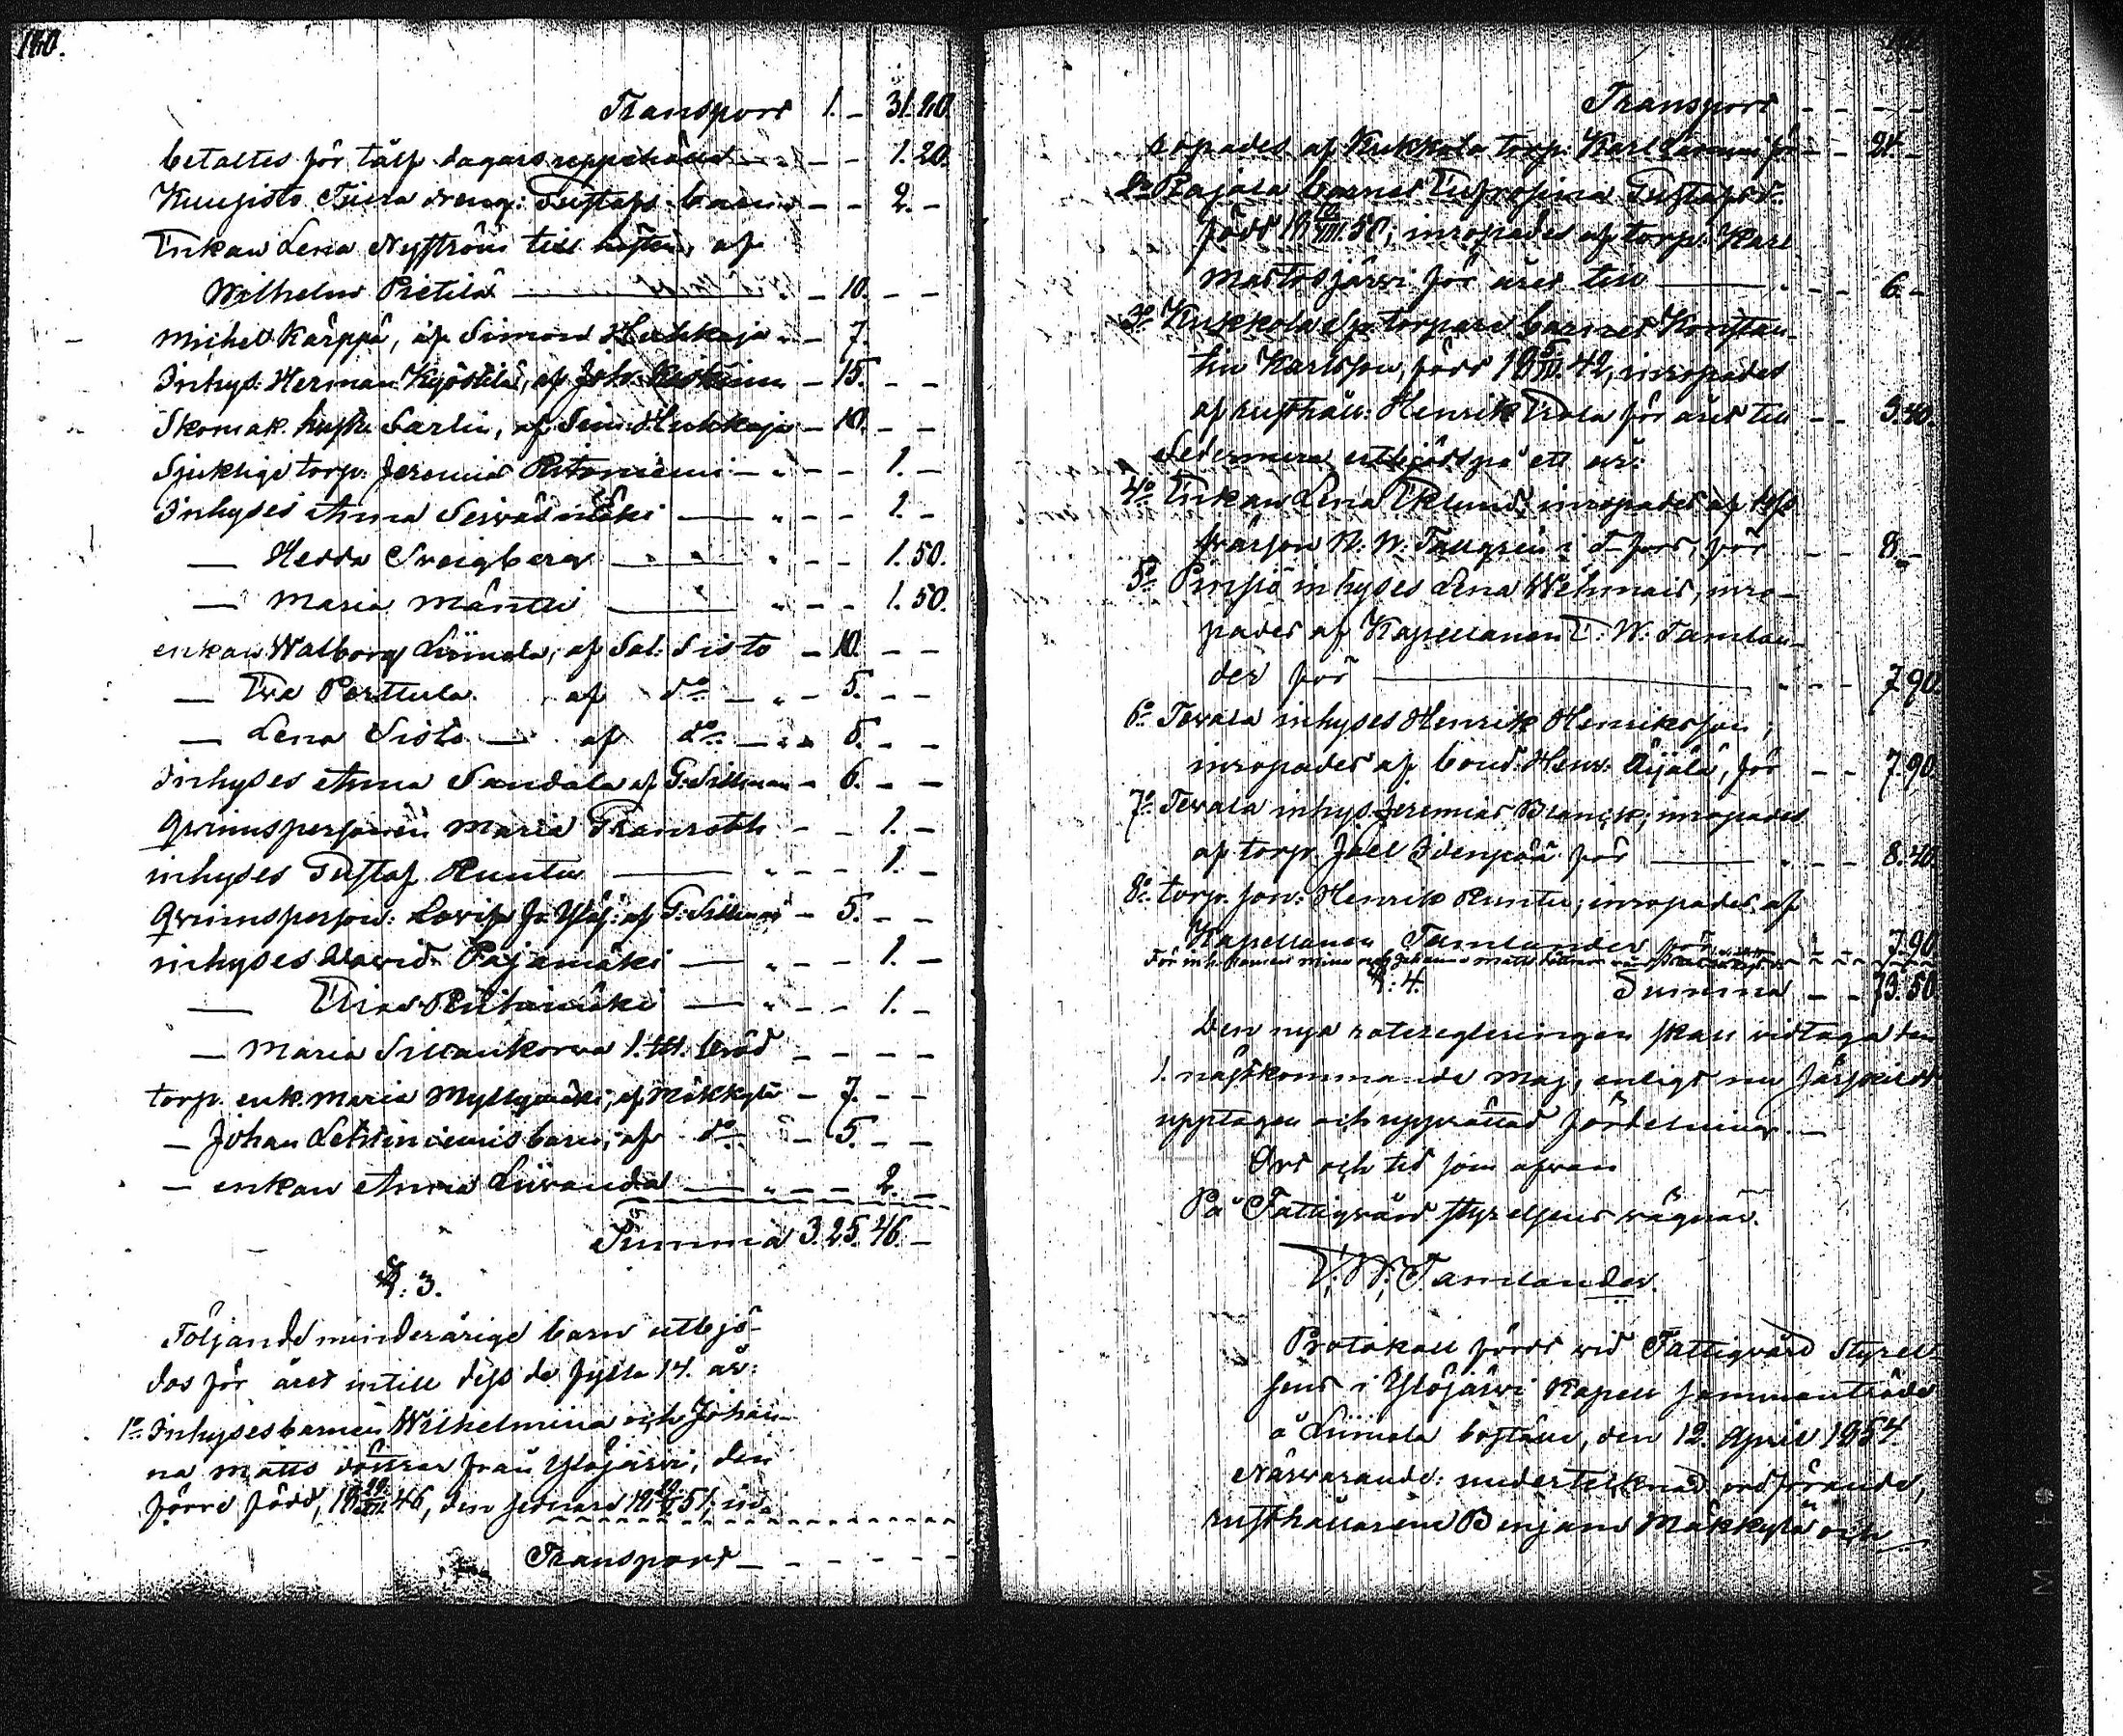 180.
Transport 1. – 31.20.
betaltes för tålf dagars uppehälle – – – 1.20.
Kuusisto Tiura dreng: Gustafs barn – – 2. –
Enkan Lena Nyström till hyfta, af
Wilhelm Pietilä – 10. – –
Michel Kärppä, af Simon Huhkaja – 7.
Inhys: Herman Kyöstilä, af Joh. – 15. – –
Skomak. Sarlin, af Sim: Huhkaja – 10. – –
Sjuklige torp: Jeremias Ritoniemi – – – 1. –
Inhyses Anna Seiväsmäki – – – 1. –
— Hedda Sveigberg – – – 1.50.
— Maria Mäntti – – – 1.50.
enkan Walborg Liimola, af Sal. Sisto – 10. – –
— Eva Perttula af do – 5. – –
— Lena Sisto — af do – 5. – –
Inhyses Anna Sandala af G: Sillman – 6. – –
Qvinnspersonen Maria Granroth – – 1. –
inhyses Gustaf Runtu – – – 1. –
Qvinnsperson: Lovisa af G: Sillman – 5. – –
inhyses David Pajamäki – – – 1. –
— Elias Riihimäki – – – 1. –
— Maria Sillankorva 1. – – – –
torp. enk. Maria Myllymäki, af Mäkkylä – 7. – –
— Johan Lehtiniemis barn, af do – 5. – –
— enkan Anna Liivanda – – – 2. –
Summa 3.25.46. –
§: 3.
Följande minderårige barn utbjö-
dos för året intill dess de fylla 14. år:
1o Inhysesbarnen Wilhelmina och Johan-
na Matts döttrar från Ylöjärvi, den
förre född, 18 46, den sednare 18 51, in-
Transport – – – – –
Transport – – – –
ropades af Kukkola torp: Karl för – – 21. –
2o Pajala barnet Eufrosina Gustafsdr.
född 18 50; inropades af torp: Karl
Mastosjärvi för året till – – – 6. –
3o Kukkola torpare barnet Konstan-
tin Karlsson, född 18 42, inropades
af rusthåll: Henrik Erola för året till – – 5.40.
Sedermera utbjöds på ett år:
4o Enkan Lena Eklund, inropades af
W: W: Tallgren i T-fors, för – – 8. –
5o Pinsiö inhyses Lena Wehmais, inro-
pades af Kapellanen E: W: Tamlan-
der för – – – 7.90.
6o Tevala inhyses Henrik Henriksson;
inropades af bond: Henr: Äijälä, för – – 7.90.
7o Tevala inhys Jeremias Blanck; inropades
af torp: Joel Idenpää för – – – 8.40
8o torp. son: Henrik Runtu; inropades af
Kapellanen Tamlander för – – – 7.90.
§: 4.
Summa – – 73.50.
Den nya roteregleringen skall vidtaga den
1. nästkommande Maj, enligt nu särskildt
upptagen och upprättad fördelning. –
Ort och tid som ofvan
På Fattigvård styrelsens vägnar.
E. W. Tamlander.
Protokoll fördt vid Fattigvård Styrel-
sens i Ylöjärvi Kapell sammanträde
å Liimola boställe, den 12. April 1854
Närvarande: undertecknad ordförande,
rusthållarene Benjam Mäkkylä och